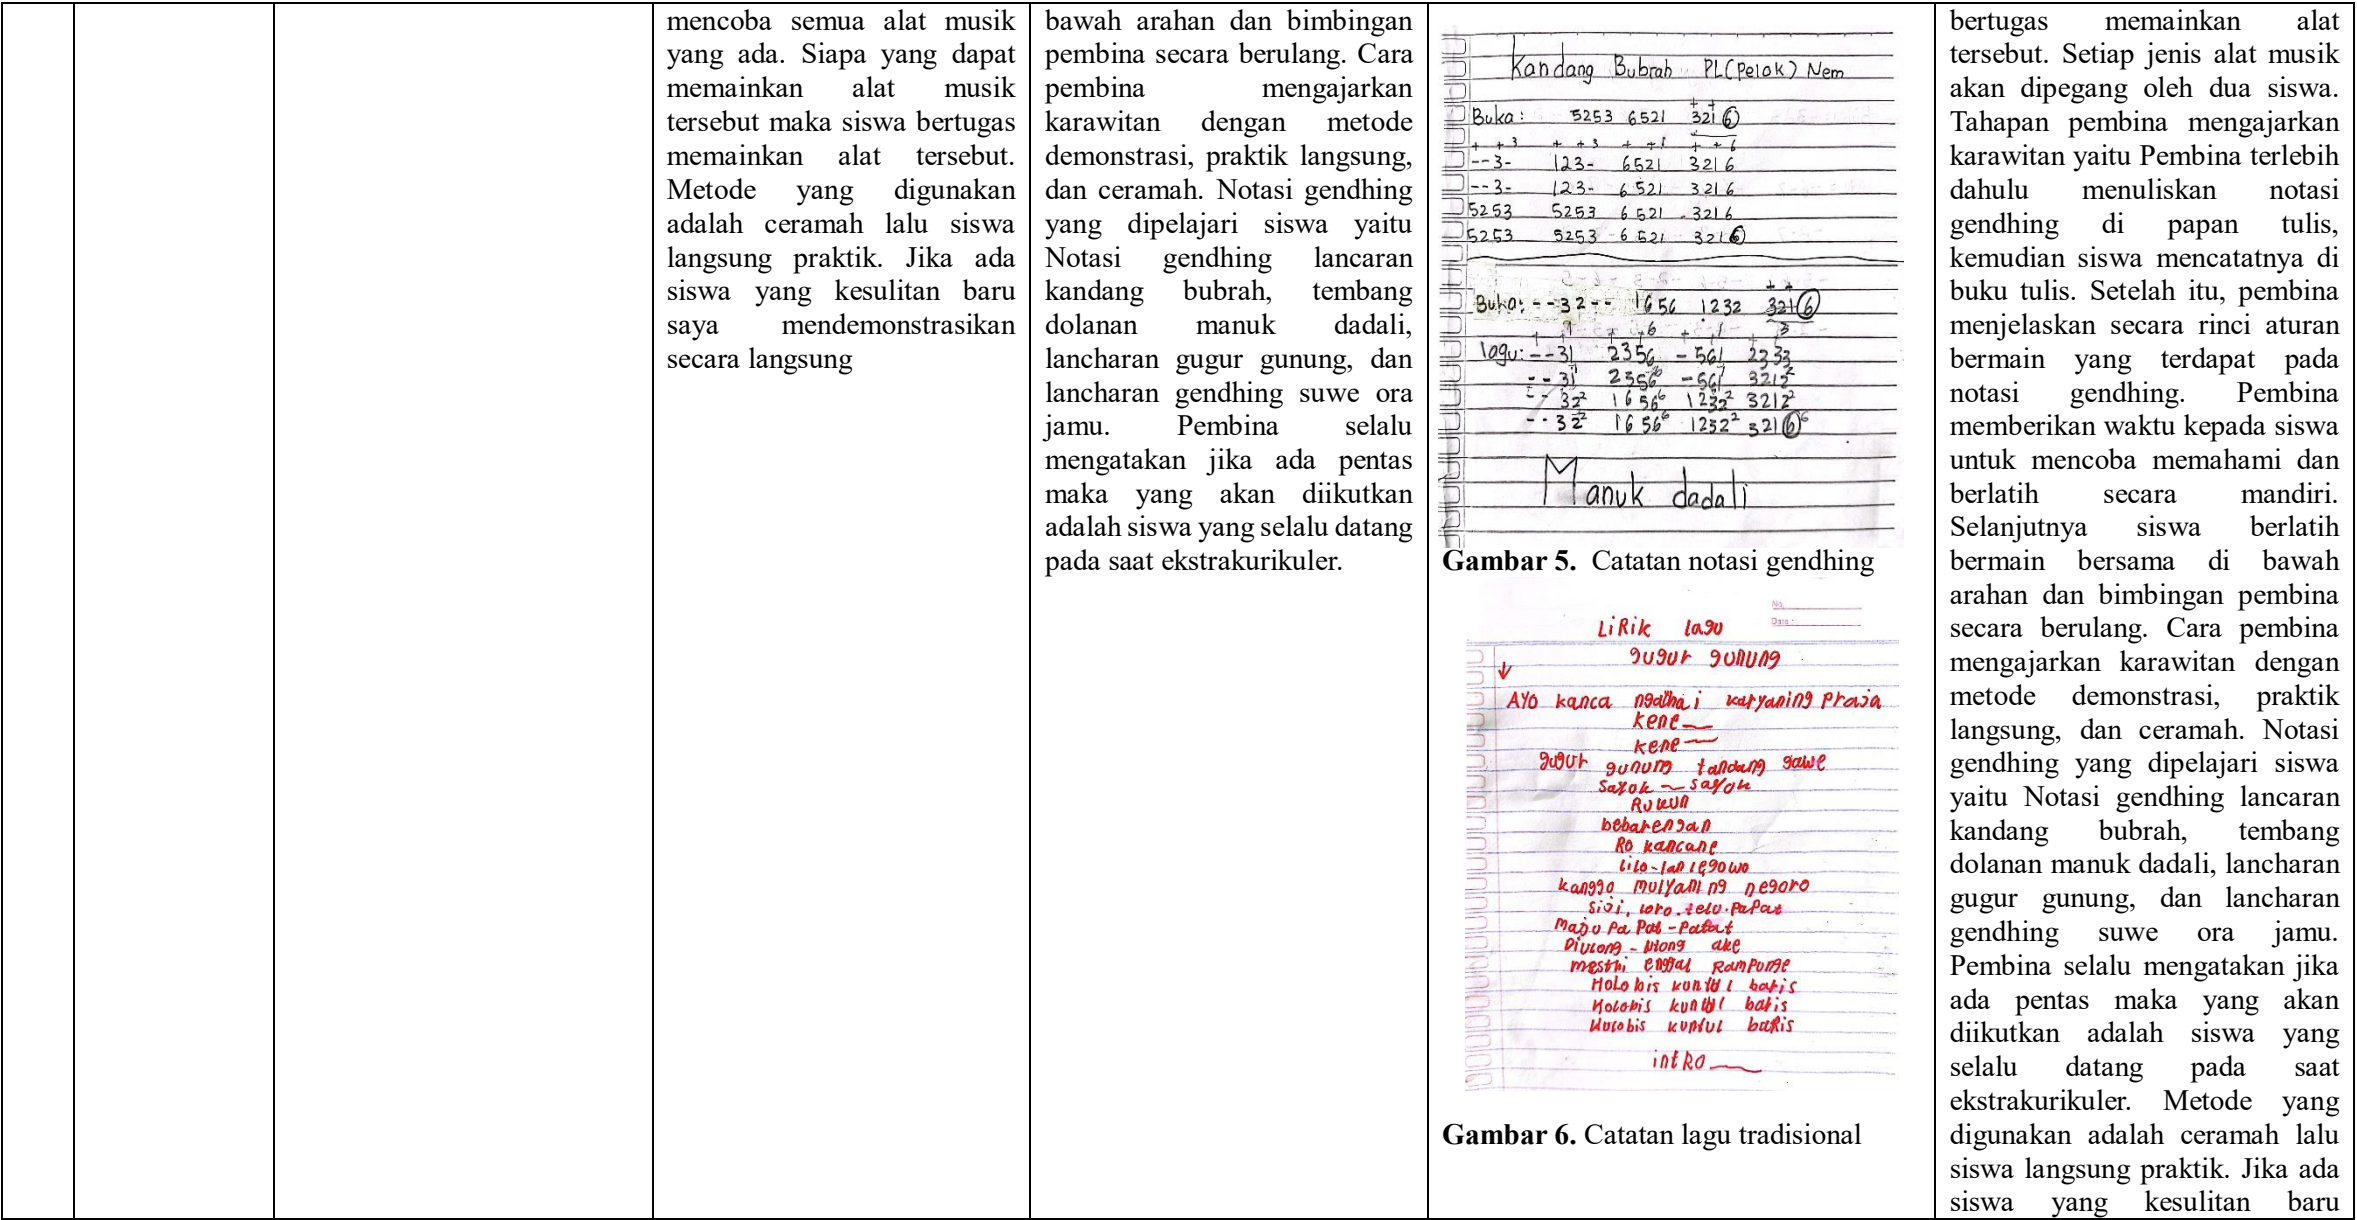 mencoba semua alat musik
yang ada. Siapa yang dapat
memainkan alat musik
tersebut maka siswa bertugas
memainkan alat tersebut.
Metode yang digunakan
adalah ceramah lalu siswa
langsung praktik. Jika ada
siswa yang kesulitan baru
saya mendemonstrasikan
secara langsung
bawah arahan dan bimbingan
pembina secara berulang. Cara
pembina mengajarkan
karawitan dengan metode
demonstrasi, praktik langsung,
dan ceramah. Notasi gendhing
yang dipelajari siswa yaitu
Notasi gendhing lancaran
kandang bubrah, tembang
dolanan manuk dadali,
lancharan gugur gunung, dan
lancharan gendhing suwe ora
jamu. Pembina selalu
mengatakan jika ada pentas
maka yang akan diikutkan
adalah siswa yang selalu datang
pada saat ekstrakurikuler.
Kandang Bubrah PL(Pelok) Nem
+ +
Buka: 5253 6521 321 6
+ + 3 + + 3 + + 1 + + 6
--3- 123- 6521 3216
--3- 123- 6521 3216
5253 5253 6521 3216
5253 5253 6521 3216
Buka: --32-- 1656 1232 3216
lagu: --31 2356 -561 2333
--31 2356 -561 3212
--32 1656 1232 3212
--32 1656 1232 3216
Manuk dadali
Gambar 5. Catatan notasi gendhing
No.
Date:
LiRik lagu
gugur gunung
AYO kanca karyaning Praja
kene
kene
gugur gunung tandang gawe
Sayok - sayok
Rukun
bebarengan
Ro kancane
kanggo mulyaning negoro
Siji, loro. telu. PaPat
Maju Pa Pat - Patat
mesthi enggal RamPunge
Holobis kuntul baris
Holobis kuntul baris
Holobis kuntul baRis
intRo
Gambar 6. Catatan lagu tradisional
bertugas memainkan alat
tersebut. Setiap jenis alat musik
akan dipegang oleh dua siswa.
Tahapan pembina mengajarkan
karawitan yaitu Pembina terlebih
dahulu menuliskan notasi
gendhing di papan tulis,
kemudian siswa mencatatnya di
buku tulis. Setelah itu, pembina
menjelaskan secara rinci aturan
bermain yang terdapat pada
notasi gendhing. Pembina
memberikan waktu kepada siswa
untuk mencoba memahami dan
berlatih secara mandiri.
Selanjutnya siswa berlatih
bermain bersama di bawah
arahan dan bimbingan pembina
secara berulang. Cara pembina
mengajarkan karawitan dengan
metode demonstrasi, praktik
langsung, dan ceramah. Notasi
gendhing yang dipelajari siswa
yaitu Notasi gendhing lancaran
kandang bubrah, tembang
dolanan manuk dadali, lancharan
gugur gunung, dan lancharan
gendhing suwe ora jamu.
Pembina selalu mengatakan jika
ada pentas maka yang akan
diikutkan adalah siswa yang
selalu datang pada saat
ekstrakurikuler. Metode yang
digunakan adalah ceramah lalu
siswa langsung praktik. Jika ada
siswa yang kesulitan baru